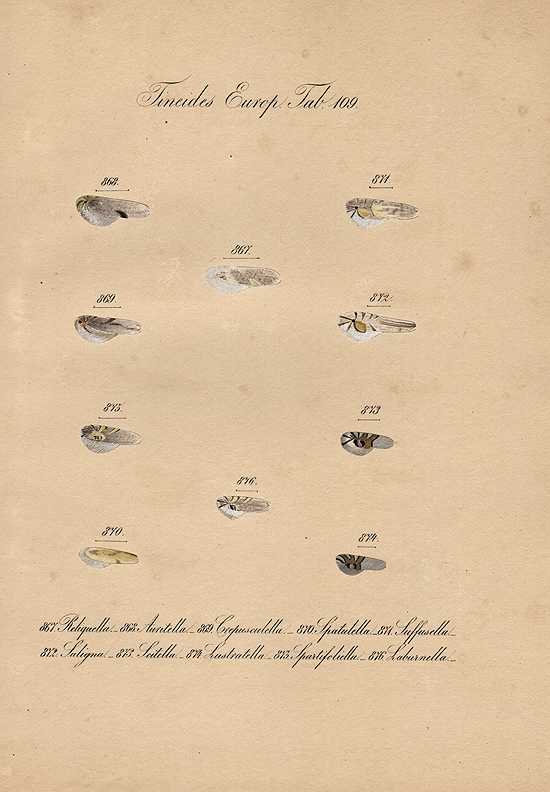 Tineides Europ. Tab. 109.
868.
871.
867.
869.
872.
875.
873
876.
870.
874.
867. Reliquella._ 868. Auritella._ 869. Crepusculella._ 870. Spatulella._ 871. Suffusella._
872. Saligna._ 873. Scitella._ 874. Lustratella._ 875. Spartifoliella._ 876. Laburnella._